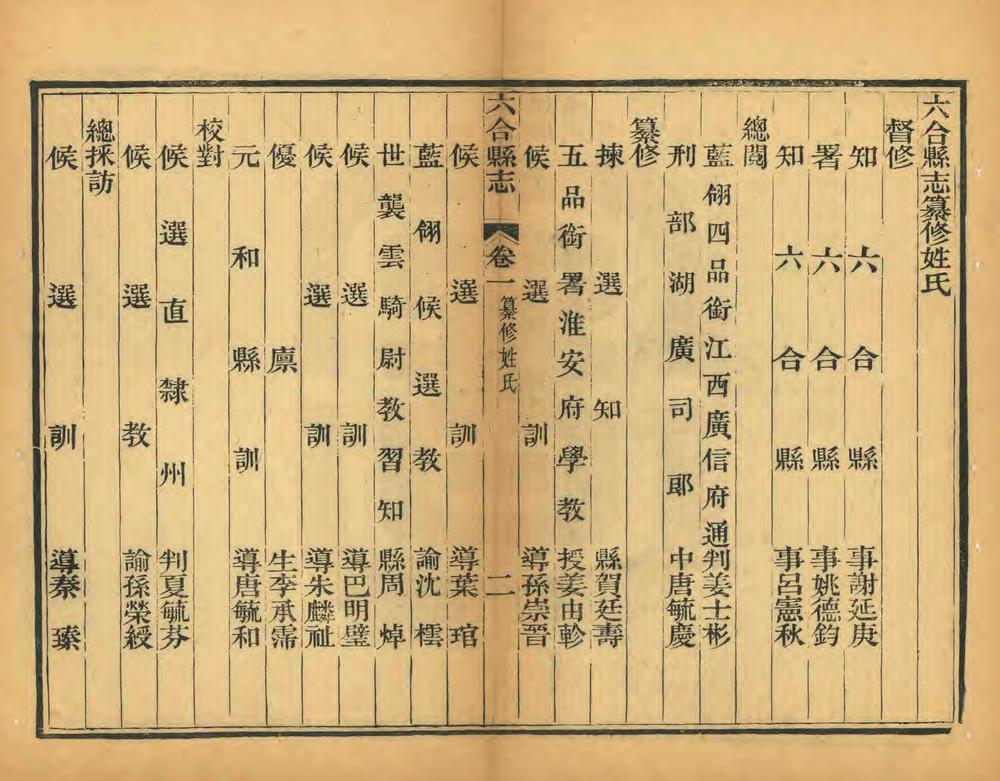 六合縣志纂修姓氏
督修
知六合縣事謝延庚
署六合縣事姚德鈞
知六合縣事呂憲秋
總閱
藍翎四品銜江西廣信府通判姜士彬
刑部湖廣司郎中唐毓慶
纂修
揀選知縣賀廷壽
五品銜署淮安府學教授姜由軫
候選訓導孫崇晉
六合縣志 卷一 纂修姓氏 二
候選訓導葉琯
藍翎候選教諭沈橒
世襲雲騎尉教習知縣周焯
候選訓導巴明璧
候選訓導朱麟祉
優廩生李承霈
元和縣訓導唐毓和
校對
候選直隸州判夏毓芬
候選教諭孫榮綬
總採訪
候選訓導秦臻